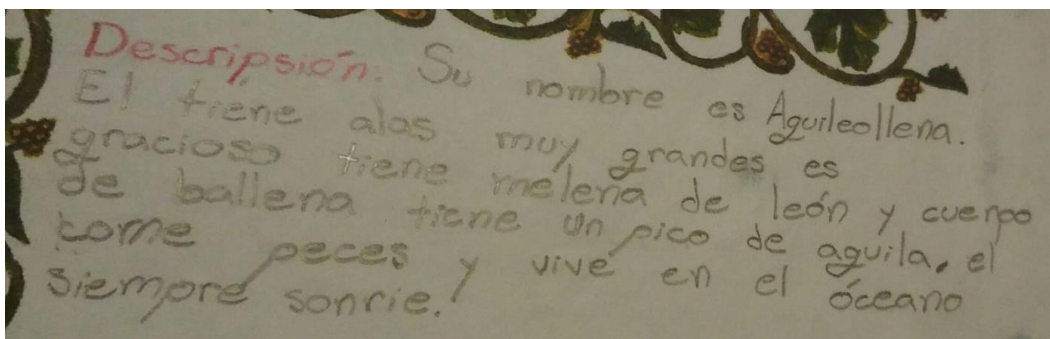 Descripsión: Su nombre es Aguileollena.
El tiene alas muy grandes es
gracioso tiene melena de león y cuerpo
de ballena tiene un pico de aguila, el
come peces y vive en el óceano
siempre sonrie.